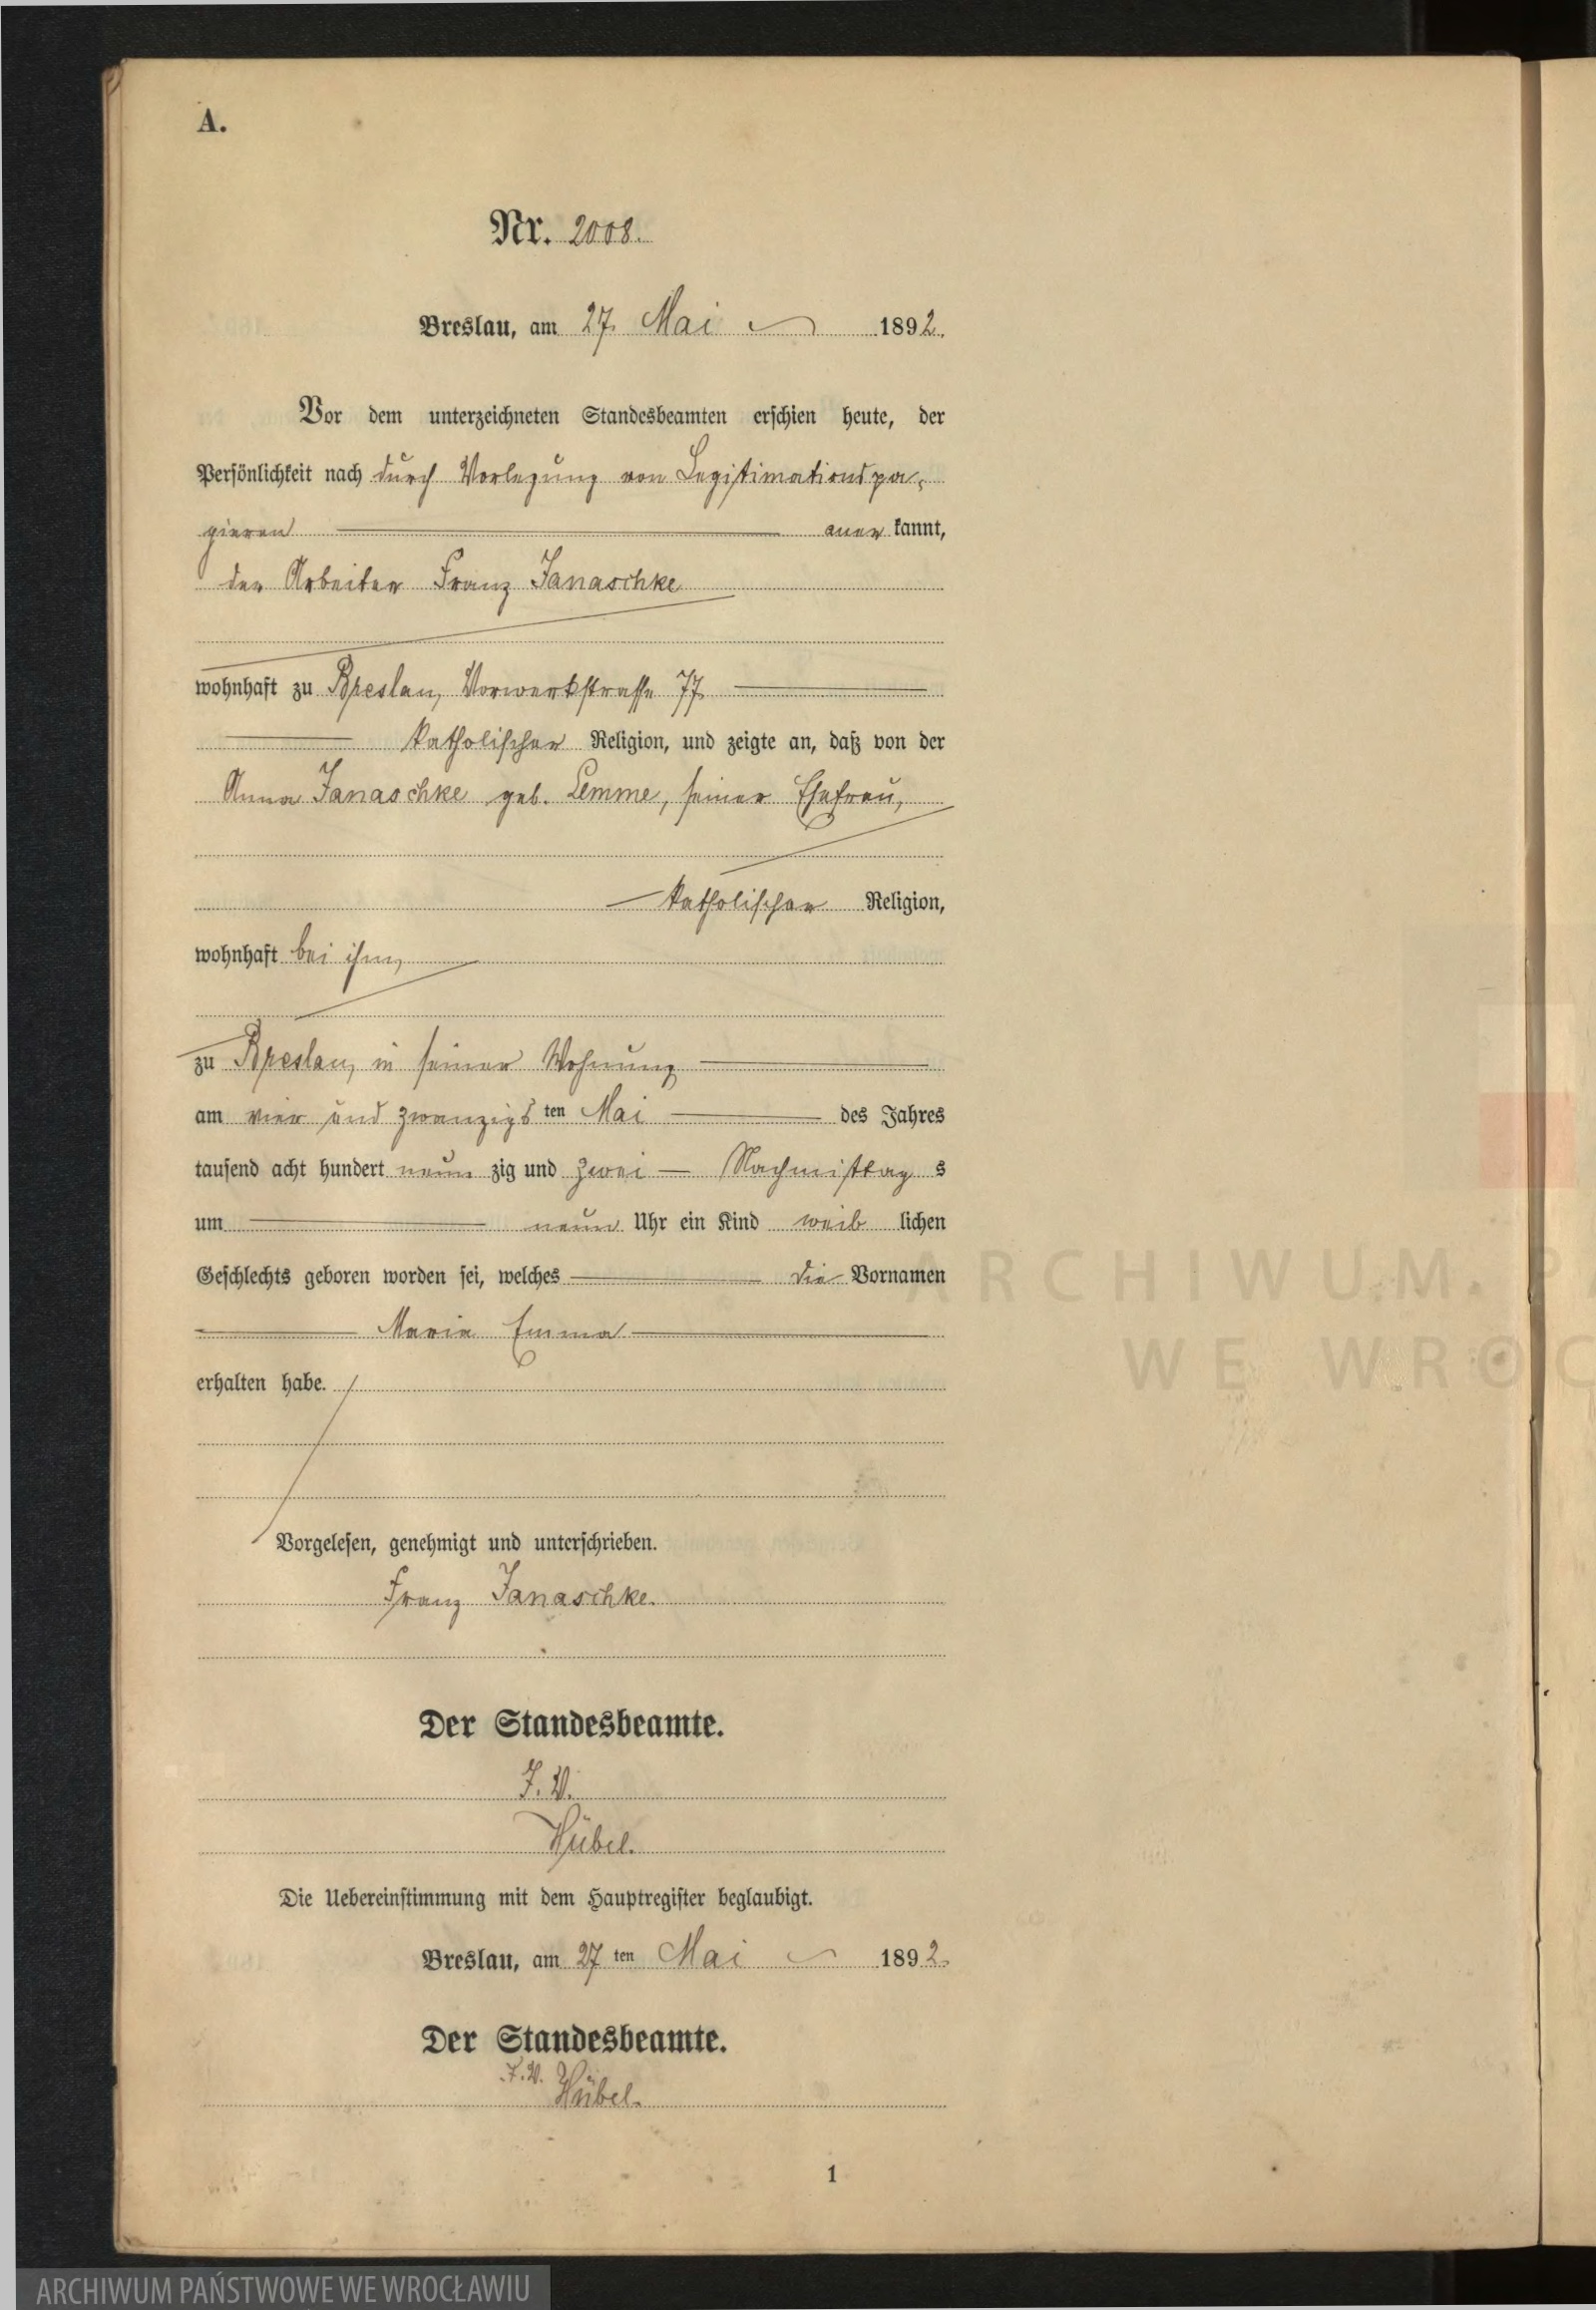 A.
Nr. 2008.
Breslau, am 27. Mai 1892.
Vor dem unterzeichneten Standesbeamten erschien heute, der
Persönlichkeit nach durch Vorlegung von Legitimationspa-
pieren aner kannt,
der Arbeiter Franz Janaschke
wohnhaft zu Breslau, Vorwerkstrasse 77
katholischer Religion, und zeigte an, daß von der
Anna Janaschke geb. Lemme, seiner Ehefrau,
katholischer Religion,
wohnhaft bei ihm,
zu Breslau, in seiner Wohnung
am vier und zwanzigs ten Mai des Jahres
tausend acht hundert neun zig und zwei Nachmittag s
um neun Uhr ein Kind weib lichen
Geschlechts geboren worden sei, welches die Vornamen
Maria Emma
erhalten habe.
Vorgelesen, genehmigt und unterschrieben.
Franz Janaschke.
Der Standesbeamte.
J. V.
Hübel.
Die Uebereinstimmung mit dem Hauptregister beglaubigt.
Breslau, am 27 ten Mai 1892.
Der Standesbeamte.
J. V. Hübel.
1
ARCHIWUM. P
WE WROC
ARCHIWUM PAŃSTWOWE WE WROCŁAWIU